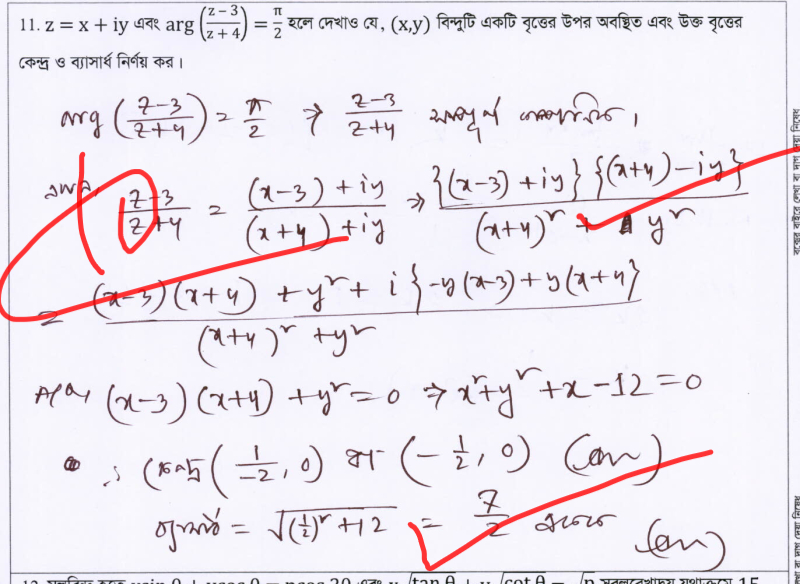 11. z = x + iy এবং arg (z − 3 / z + 4) = π/2 হলে দেখাও যে, (x,y) বিন্দুটি একটি বৃত্তের উপর অবস্থিত এবং উক্ত বৃত্তের
কেন্দ্র ও ব্যাসার্ধ নির্ণয় কর।
arg (z-3 / z+4) = π/2 ⇒ z-3 / z+4 সম্পূর্ণ কাল্পনিক।
z-3 / z+4 = (x-3) + iy / (x+4) + iy ⇒ {(x-3) + iy} {(x+4) - iy} / (x+4)² + y²
= (x-3)(x+4) + y² + i {-y(x-3) + y(x+4)} / (x+4)² + y²
(x-3)(x+4) + y² = 0 ⇒ x² + y² + x - 12 = 0
∴ কেন্দ্র (1/-2, 0) বা (-1/2, 0) (Ans)
ব্যাসার্ধ = √(1/2)² + 12 = 7/2 একক (Ans)